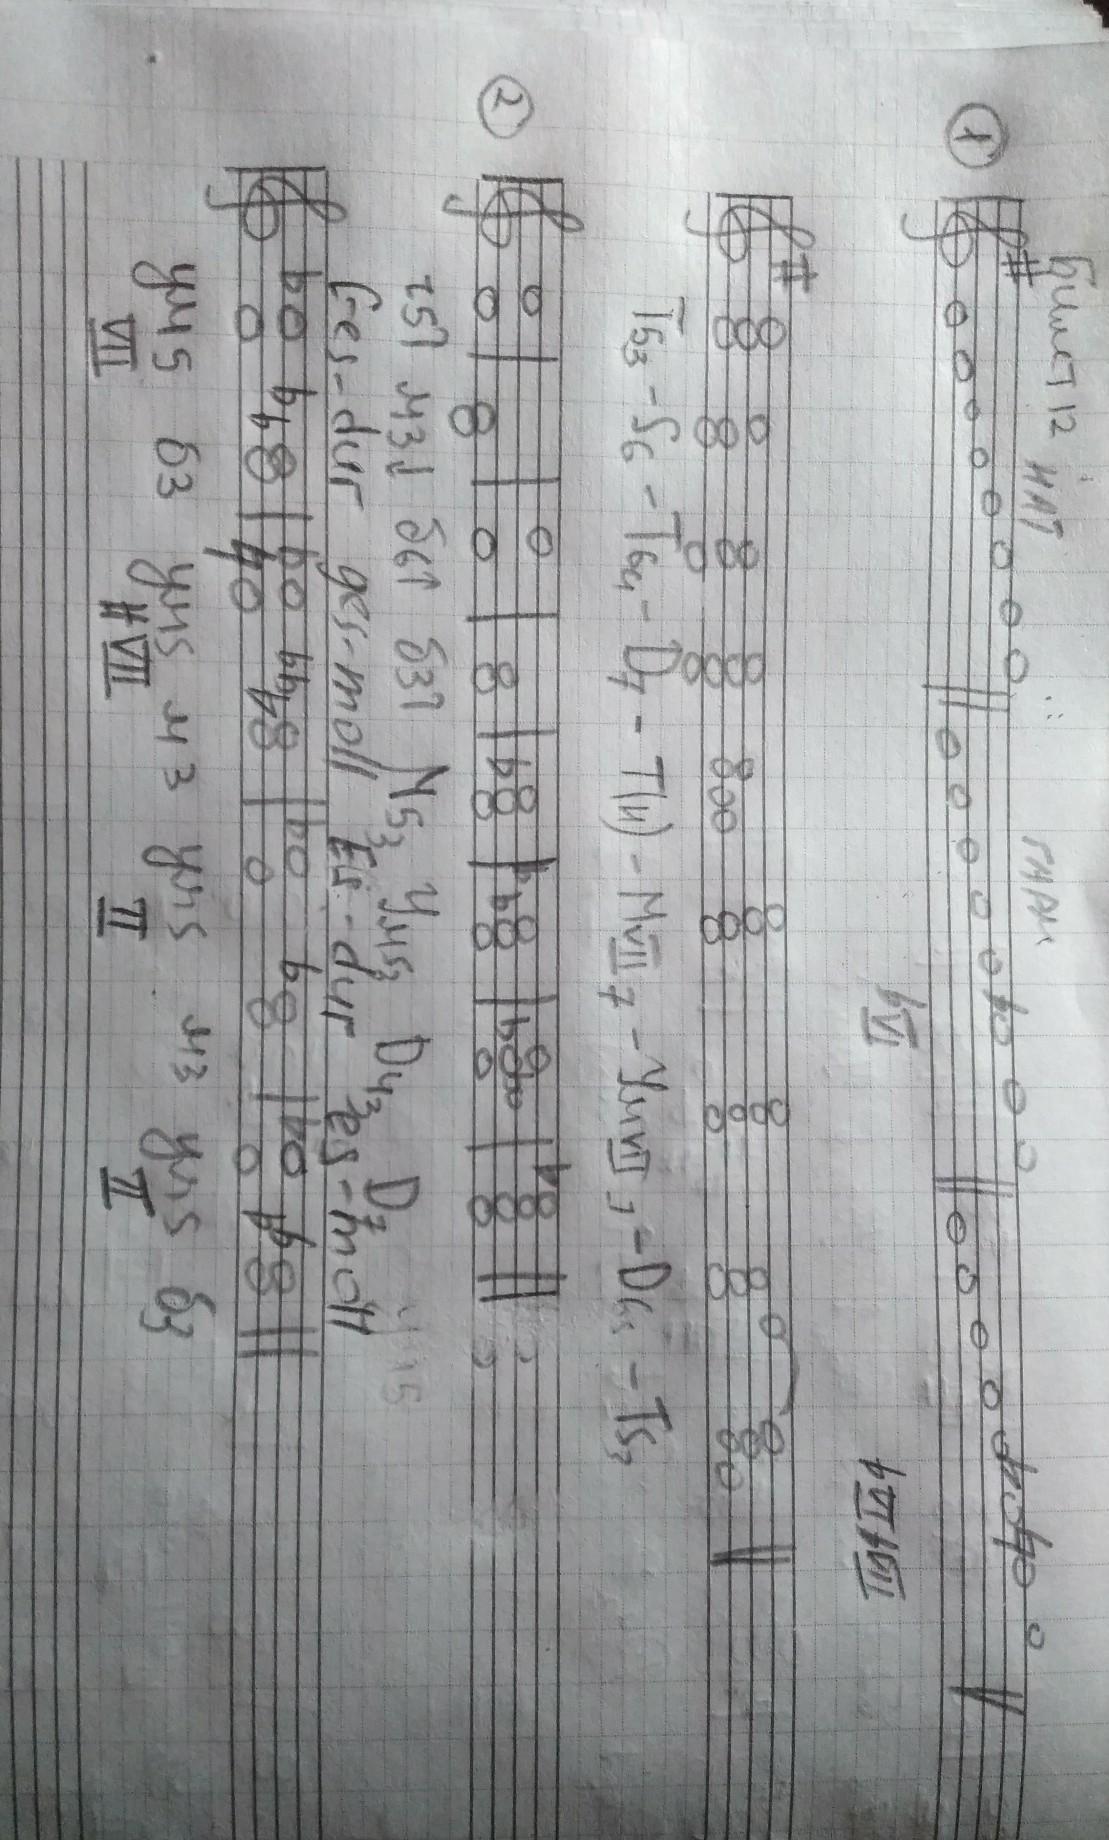 Билет 12 нат гарм
①
♭VI ♭VI♭VII
T53 – S6 – T64 – D7 – T(н) – MVII7 – УмVII7 – D65 – T53
②
ч5↑ м3↓ б6↑ б3↑ М53 Ум53 D43 D7
Ges-dur ges-moll Es-dur es-moll
ум5 б3 ум5 м3 ум5 м3 ум5 б3
VII #VII II II